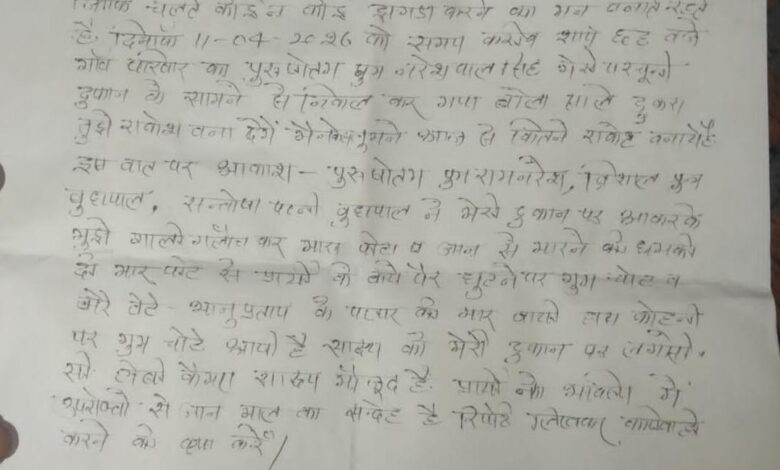 चलते कोई न कोई झगडा करने का मन बनाते रहते
है. दिनाँक 11-04-2026 को समय करीब शाम छह बजे
गाँव का पुरुषोतम पुत्र नरेशपाल सिंह मेरी परचूनी
दुकान के सामने से निकल कर गया बोला साले
तुझे राकेश बना देगें मैने कहा तुमने आज से कितने राकेश बनाये है
इस बात पर आकाश - पुरुषोतम पुत्र रामनरेश, विशाल पुत्र
बुद्धपाल, सन्तोषी पत्नी बुद्धपाल ने मेरी दुकान पर आकर के
मुझे गाली गलौच कर मारा पीटा व जान से मारने की धमकी
दी मार पीट से प्रार्थी के बांये पैर घुटने पर गुम चोट व
मेरे बेटे - भानुप्रताप के पत्थर की मार बायें हाथ कोहनी
पर गुम चोटे आयी है. साक्ष्य को मेरी दुकान पर लगे सी.
सी टीवी कैमरा साक्ष्य मौजूद है. प्रार्थी को भविष्य में
आरोपियो से जान माल का संदेह है रिपोर्ट लिखकर कार्यवाही
करने की कृपा करें/